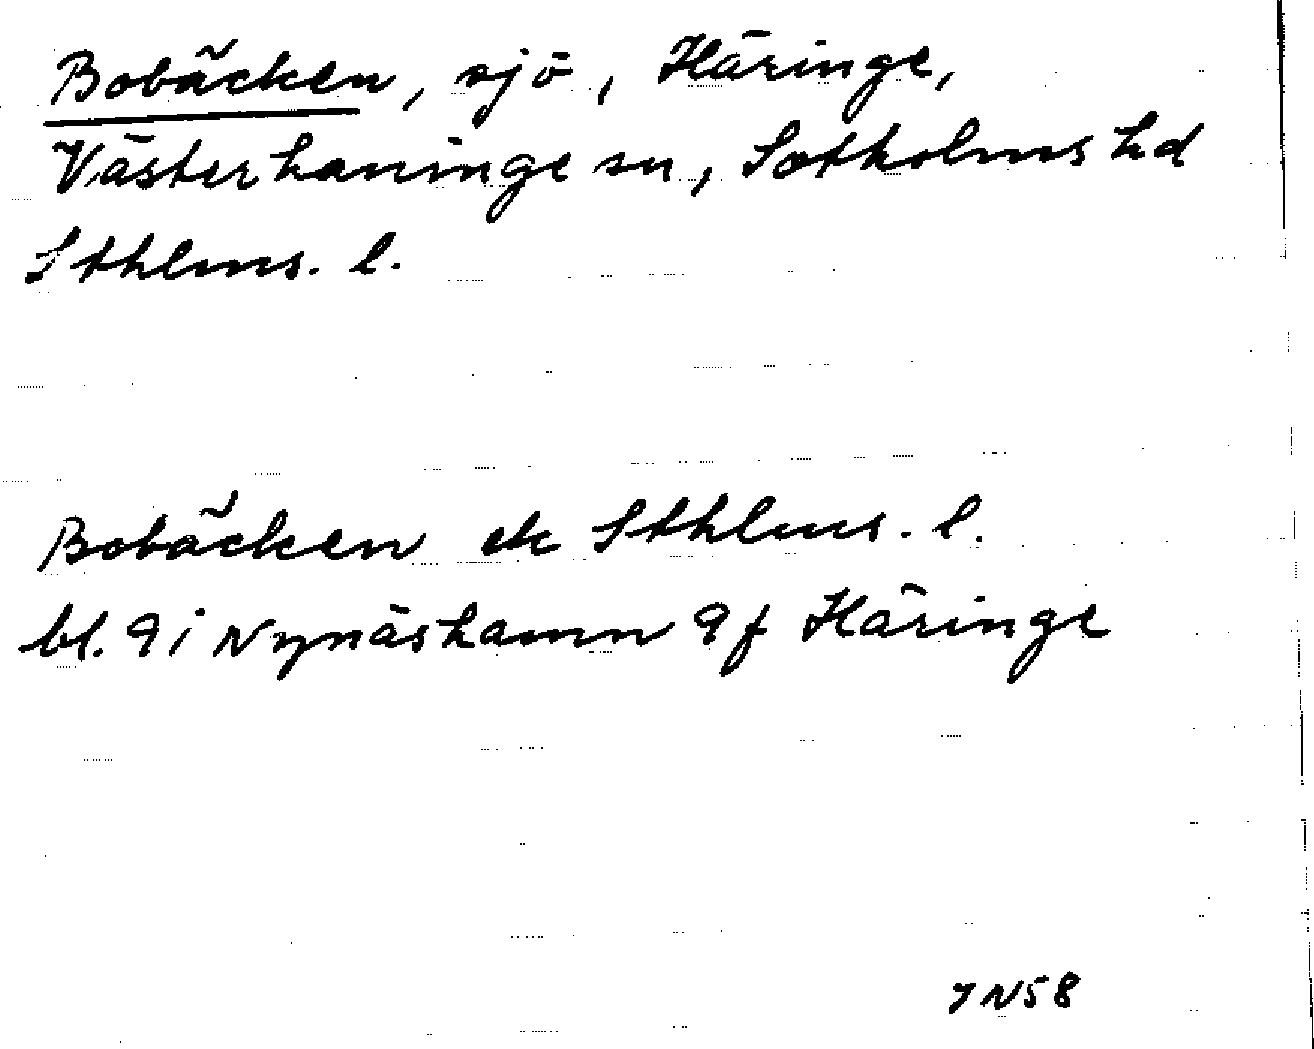 Bobäcken, sjö, Häringe,
Västerhaninge sn, Sotholms hd
Sthlms. l.
Bobäcken ek Sthlms. l.
bl. 9i Nynäshamn 9f Häringe
JN58